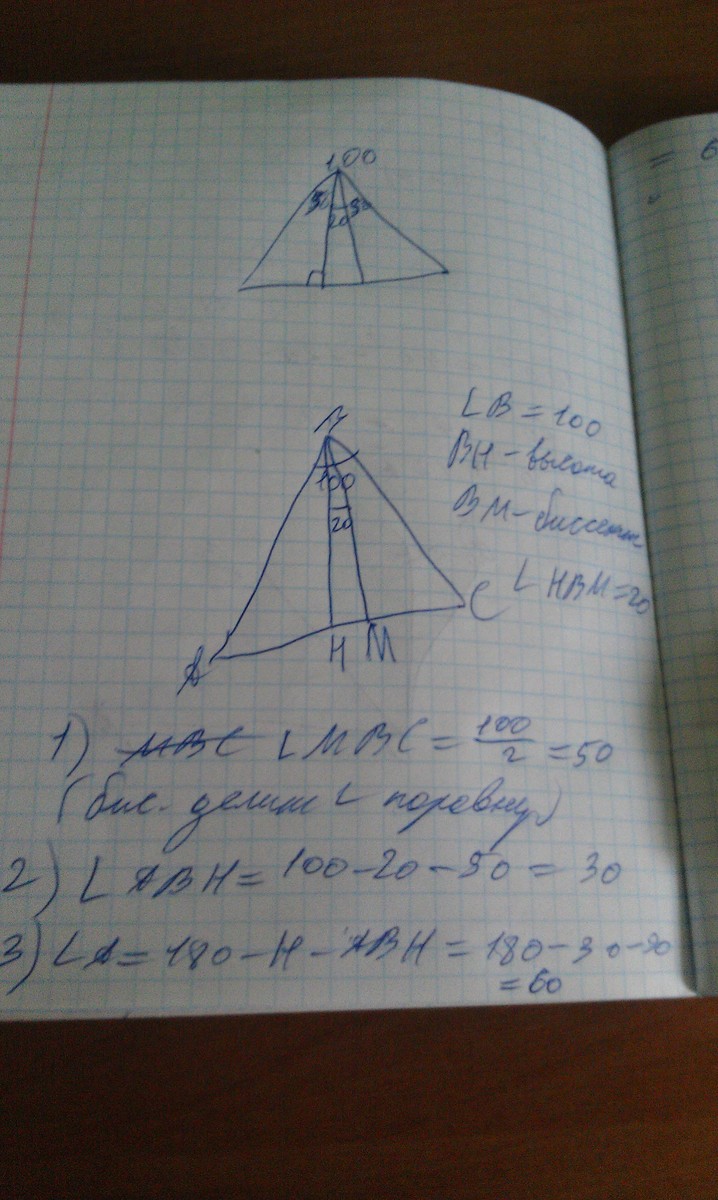 100
30 50
20
= 6
B
100
20
A H M C
∠B = 100
BH - высота
BM - биссектр
∠HBM = 20
1) ∠MBC = 100/2 = 50
(бис. делит ∠ поровну)
2) ∠ABH = 100 - 20 - 50 = 30
3) ∠A = 180 - H - ABH = 180 - 30 - 90
= 60